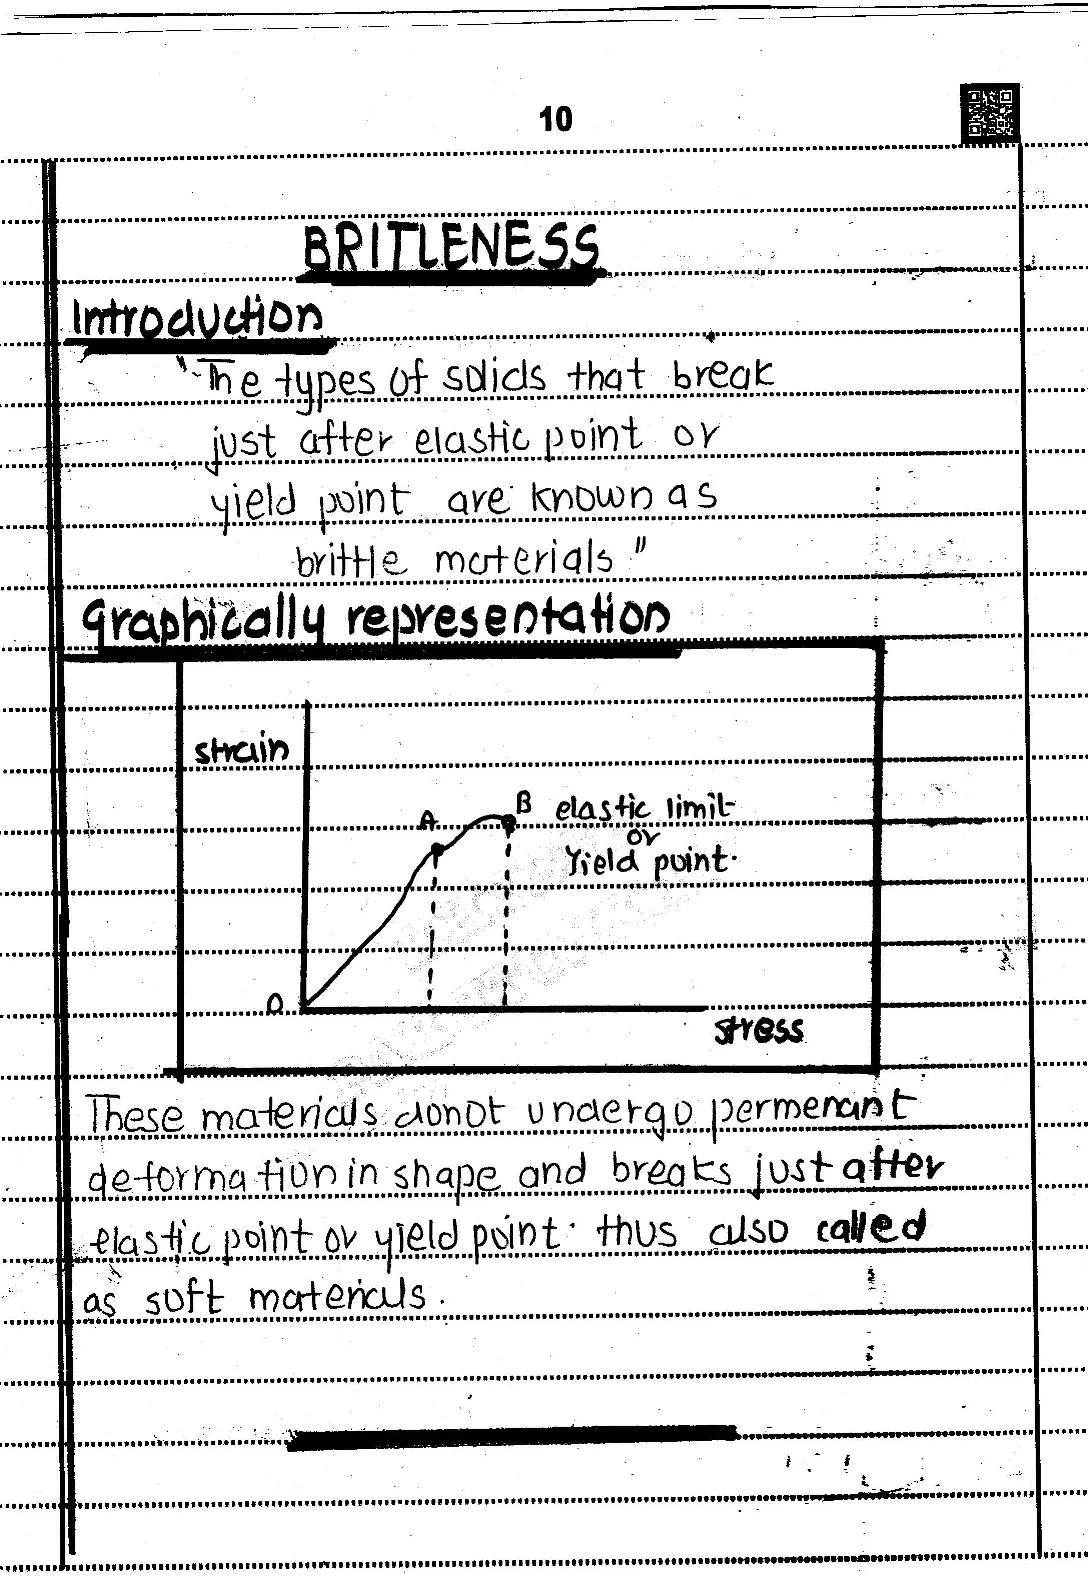 10
BRITLENESS
Introduction
"The types of solids that break
just after elastic point or
yield point are known as
brittle materials"
Graphically representation
strain
A
B
elastic limit
or
Yield point.
O
stress
These materials donot undergo permenant
deformation in shape and breaks just after
elastic point or yield point. thus also called
as soft materials.